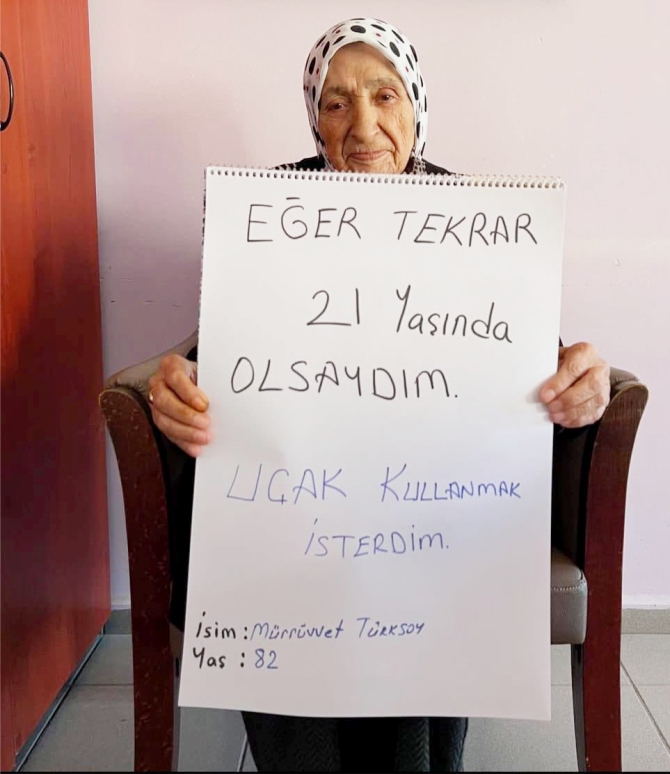 EĞER TEKRAR
21 Yaşında
OLSAYDIM.
UÇAK KULLANMAK
İSTERDİM.
İsim : Mürrüvvet Türksoy
Yaş : 82